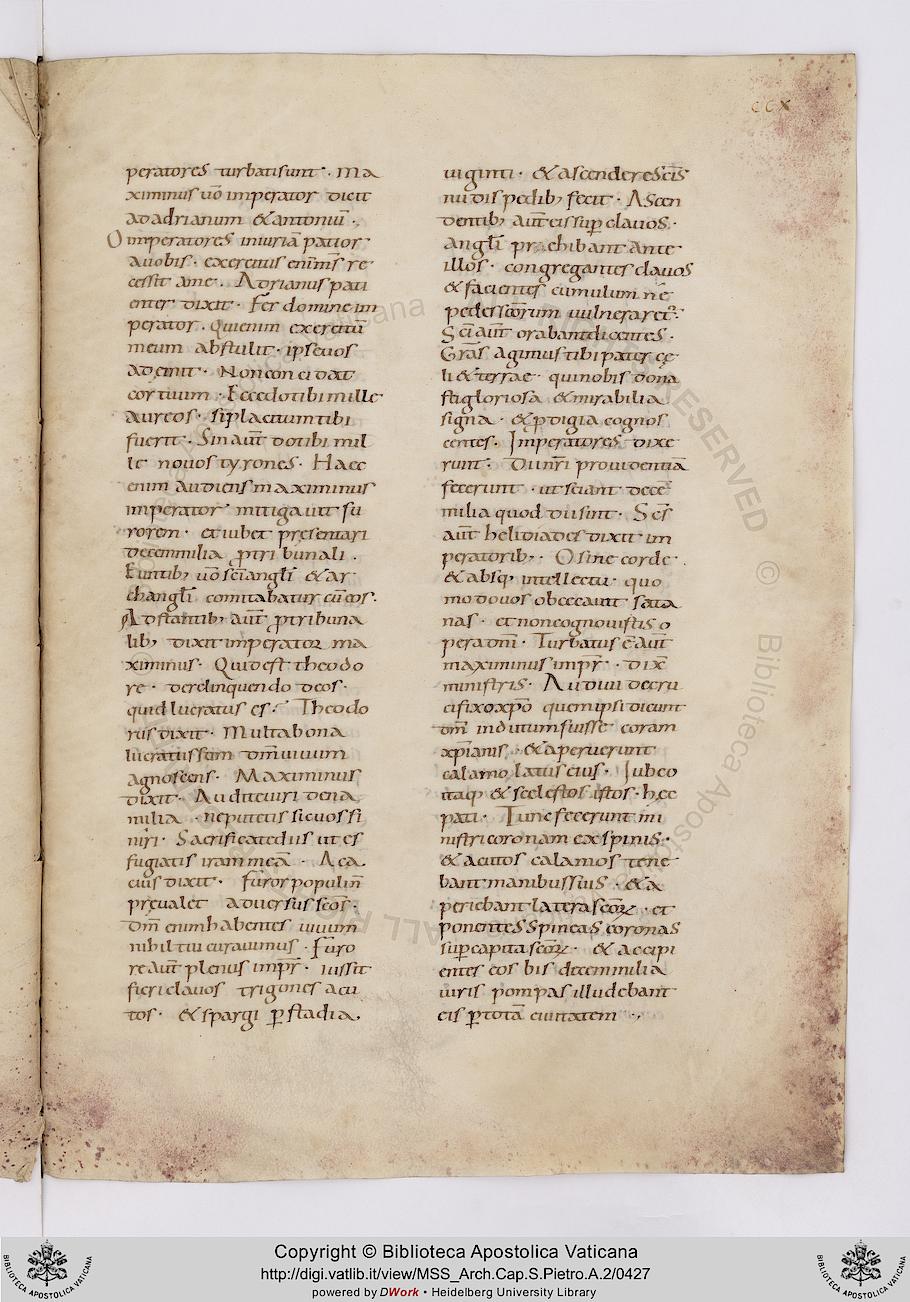 CCX
peratores turbati sunt · Ma
ximinus uō imperator dicit
ad adrianum & antoniū ·
O imperatores iniuriā patior
auobis · exercitus enim̄s re
cessit ame · Adrianus pati
enter dixit · Fer domine im
perator · quienim exercitū
meum abstulit · ipseuos
ademit · Non conci dat
cor tuum · Ecce do tibi mille
aureos · si placitum tibi
fuerit · Sin aut̄ do tibi mil
le nouos tyrones · Haec
enim audiens maximinus
imperator mitigauit fu
rorem · et iubet presentari
decem milia ꝓ tribunali ·
Euntib; uō sc̄i angl̄i & ar
changl̄i comitabatur cū eos ·
Adstantib; aut̄ ꝓ tribuna
lib; dixit imperator ma
ximinus · Quid est theodo
re · derelinquendo deos ·
quid lucratus es · Theodo
rus dixit · Multa bona
lucratus sum dm̄ uiuum
agnoscens · Maximinus
dixit · Audite uiri dena
milia · ne putetis sic uos si
niri · Sacrificate diis ut ef
fugiatis iram meā · Aca
cius dixit · Furor populi n̄
preualet aduersus sc̄os ·
Dm̄ enim habentes uiuum
nihil tui curauimus · Furo
re aut̄ plenus imp̄r · iussit
fieri clauos trigones acu
tos · & spargi ꝑ stadia ·
uiginti · & ascendere sc̄is
nudis pedib; fecit · Ascen
dentib; aut̄ eis suꝑ clauos ·
angl̄i praehibant ante
illos · congregantes clauos
& facientes cumulum nē
pedes sc̄orum uulneraret̄ ·
Sc̄i aut̄ orabant dicentes ·
Grās agimus tibi pater cę
li & terrae · qui nobis dona
sti gloriosa & mirabilia
signa · & ꝓdigia cognos
centes · Imperatores dixe
runt · Dii nr̄i prouidentiā
fecerunt · ut sciant decē
milia quod dii sint · Sc̄s
aut̄ helidiades dixit im
peratorib; · O sine corde
& absq; intellectu · quo
modo uos obcecauit sata
nas · et non cognouistis o
pera dm̄ · Turbatus ē aut̄
maximinus imp̄r · dix̄
ministris · Audiui de cru
cifixo xp̄o quem ipsi dicunt
dm̄ indutum fuisse coram
xp̄ianis · & aperuerunt
calamo latus eius · Iubeo
itaq; & scelestos istos · hęc
pati · Tunc fecerunt mi
nistri coronam ex spinis ·
& acutos calamos tene
bant manibus suis · & a
periebant latera sc̄oꝝ · et
ponentes spineas coronas
suꝑ capita sc̄oꝝ · & accipi
entes eos bis decem milia
uiris pompas illudebant
eis ꝑ totā ciuitatem ·,
Copyright © Biblioteca Apostolica Vaticana
http://digi.vatlib.it/view/MSS_Arch.Cap.S.Pietro.A.2/0427
powered by DWork • Heidelberg University Library
BIBLIOTECA APOSTOLICA VATICANA
BIBLIOTECA APOSTOLICA VATICANA